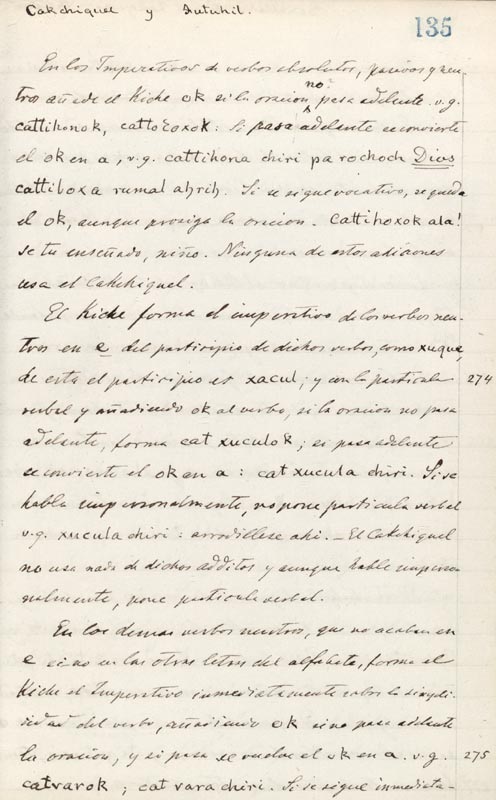 Cakchiquel y Zutuhil.
135
En los Imperativos de verbos absolutos, pasivos y neu-
tros añade el Kiche ok si la oracion no pasa adelante. v.g.
cattihonok, cattoɛoxok: Si pasa adelante se convierte
el ok en a, v.g. cattihona chiri pa rochoch Dios
cattiboxa rumal ahrih. Si se sigue vocativo, se queda
el ok, aunque prosiga la oracion. Cattihoxok ala!
se tu enseñado, niño. Ninguna de estas adiciones
usa el Cakchiquel.
El Kiche forma el imperativo de los verbos neu-
tros en e del participio de dichos verbos, como xuque,
de esta el participio es xacul; y con la particula
274
verbal y añadiendo ok al verbo, si la oracion no pasa
adelante, forma cat xuculok; si pasa adelante
se convierte el ok en a: cat xucula chiri. Si se
habla impersonalmente, no pone particula verbal
v.g. xucula chiri: arrodillese ahi. — El Cakchiquel
no usa nada de dichos additos y aunque hable imperso-
nalmente, pone particula verbal.
En los demas verbos neutros, que no acaban en
e si no en las otras letras del alfabeto, forma el
Kiche el Imperativo inmediatamente sobre la simpli-
cidad del verbo, añadiendo ok si no pasa adelante
la oracion, y si pasa se vuelve el ok en a. v.g.
275
catvarok; cat vara chiri. Si se sigue inmediata-